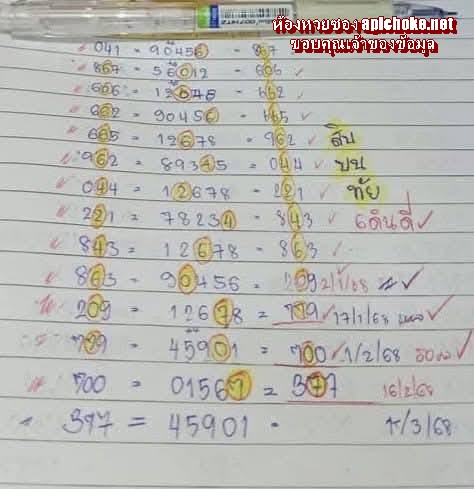 ห้องหวยซอง apichoke.net
ขอบคุณเจ้าของข้อมูล
041 = 90456 - 867
867 = 56012 - 606 ✓
606 = 12045 - 662 ✓
662 = 90456 - 665 ✓
665 = 12678 - 962 ✓ สิบ
962 = 89345 = 044 ✓ บน
044 = 12678 - 221 ✓ ทัย
221 = 78234 - 843 ✓ 6เดินดี ✓
843 = 12678 - 863 ✓
863 - 90456 = 209 2/1/68 ✓
209 = 12678 = 779 ✓ 17/1/68 ✓
779 = 45901 = 700 ✓ 1/2/68 ✓
700 = 01567 = 377 16/2/68
377 = 45901 - 1/3/68